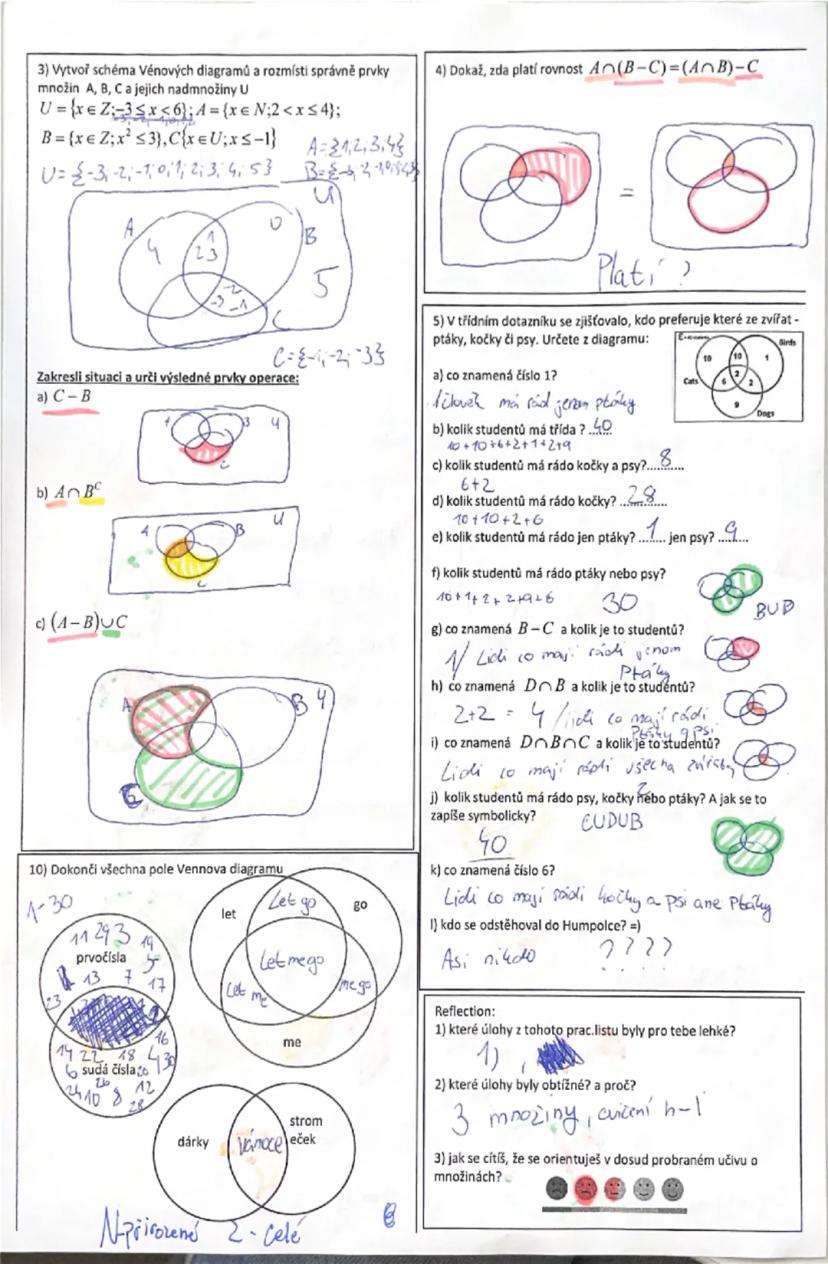 3) Vytvoř schéma Vénových diagramů a rozmísti správně prvky
množin A, B, C a jejich nadmnožiny U
U = {x ∈ Z; −3 ≤ x < 6}; A = {x ∈ N; 2 < x ≤ 4};
B = {x ∈ Z; x² ≤ 3}, C{x ∈ U; x ≤ −1}
A = {1,2,3,4}
U = {-3,-2,-1,0,1,2,3,4,5}
U
A
4
1
2 3
0
B
5
-2
-3 -1
C
C = {-1, -2, -3}
Zakresli situaci a urči výsledné prvky operace:
a) C − B
U
C
b) A ∩ Bᶜ
A
B
U
C
c) (A − B) ∪ C
A
B
U
C
4) Dokaž, zda platí rovnost A∩(B−C)=(A∩B)−C
=
Platí ?
5) V třídním dotazníku se zjišťovalo, kdo preferuje které ze zvířat -
ptáky, kočky či psy. Určete z diagramu:
Birds
10
10
1
2
6
2
9
Cats
Dogs
a) co znamená číslo 1?
1 člověk má rád jenom ptáky
b) kolik studentů má třída ? ..40
10+10+6+2+1+2+9
c) kolik studentů má rádo kočky a psy?.....8.....
6+2
d) kolik studentů má rádo kočky? ..28.....
10+10+2+6
e) kolik studentů má rádo jen ptáky? ...1.... jen psy? ..9...
f) kolik studentů má rádo ptáky nebo psy?
10+1+2+2+9+6 30
BUD
g) co znamená B−C a kolik je to studentů?
1/ Lidi co mají rádi jenom
Ptáky
h) co znamená D∩B a kolik je to studentů?
2+2 = 4 / lidi co mají rádi
Ptáky a psi
i) co znamená D∩B∩C a kolik je to studentů?
Lidi co mají rádi všechna zvířata
2
j) kolik studentů má rádo psy, kočky nebo ptáky? A jak se to
zapíše symbolicky?
CUDUB
40
k) co znamená číslo 6?
Lidi co mají rádi kočky a psi ane Ptáky
l) kdo se odstěhoval do Humpolce? =)
Asi nikdo ????
10) Dokonči všechna pole Vennova diagramu
1-30
11 29 3 19
prvočísla 5
13 7 17
23
2
16
14 22 18 4 30
6 sudá čísla 20
24 10 26 8 12
28
let
Let go
go
Let me go
Let me
me go
me
dárky
Vánoce
strom
eček
N-přirozené Z - celé
Reflection:
1) které úlohy z tohoto prac.listu byly pro tebe lehké?
1) ,
2) které úlohy byly obtížné? a proč?
3 množiny, cvičení h-l
3) jak se cítíš, že se orientuješ v dosud probraném učivu o
množinách?